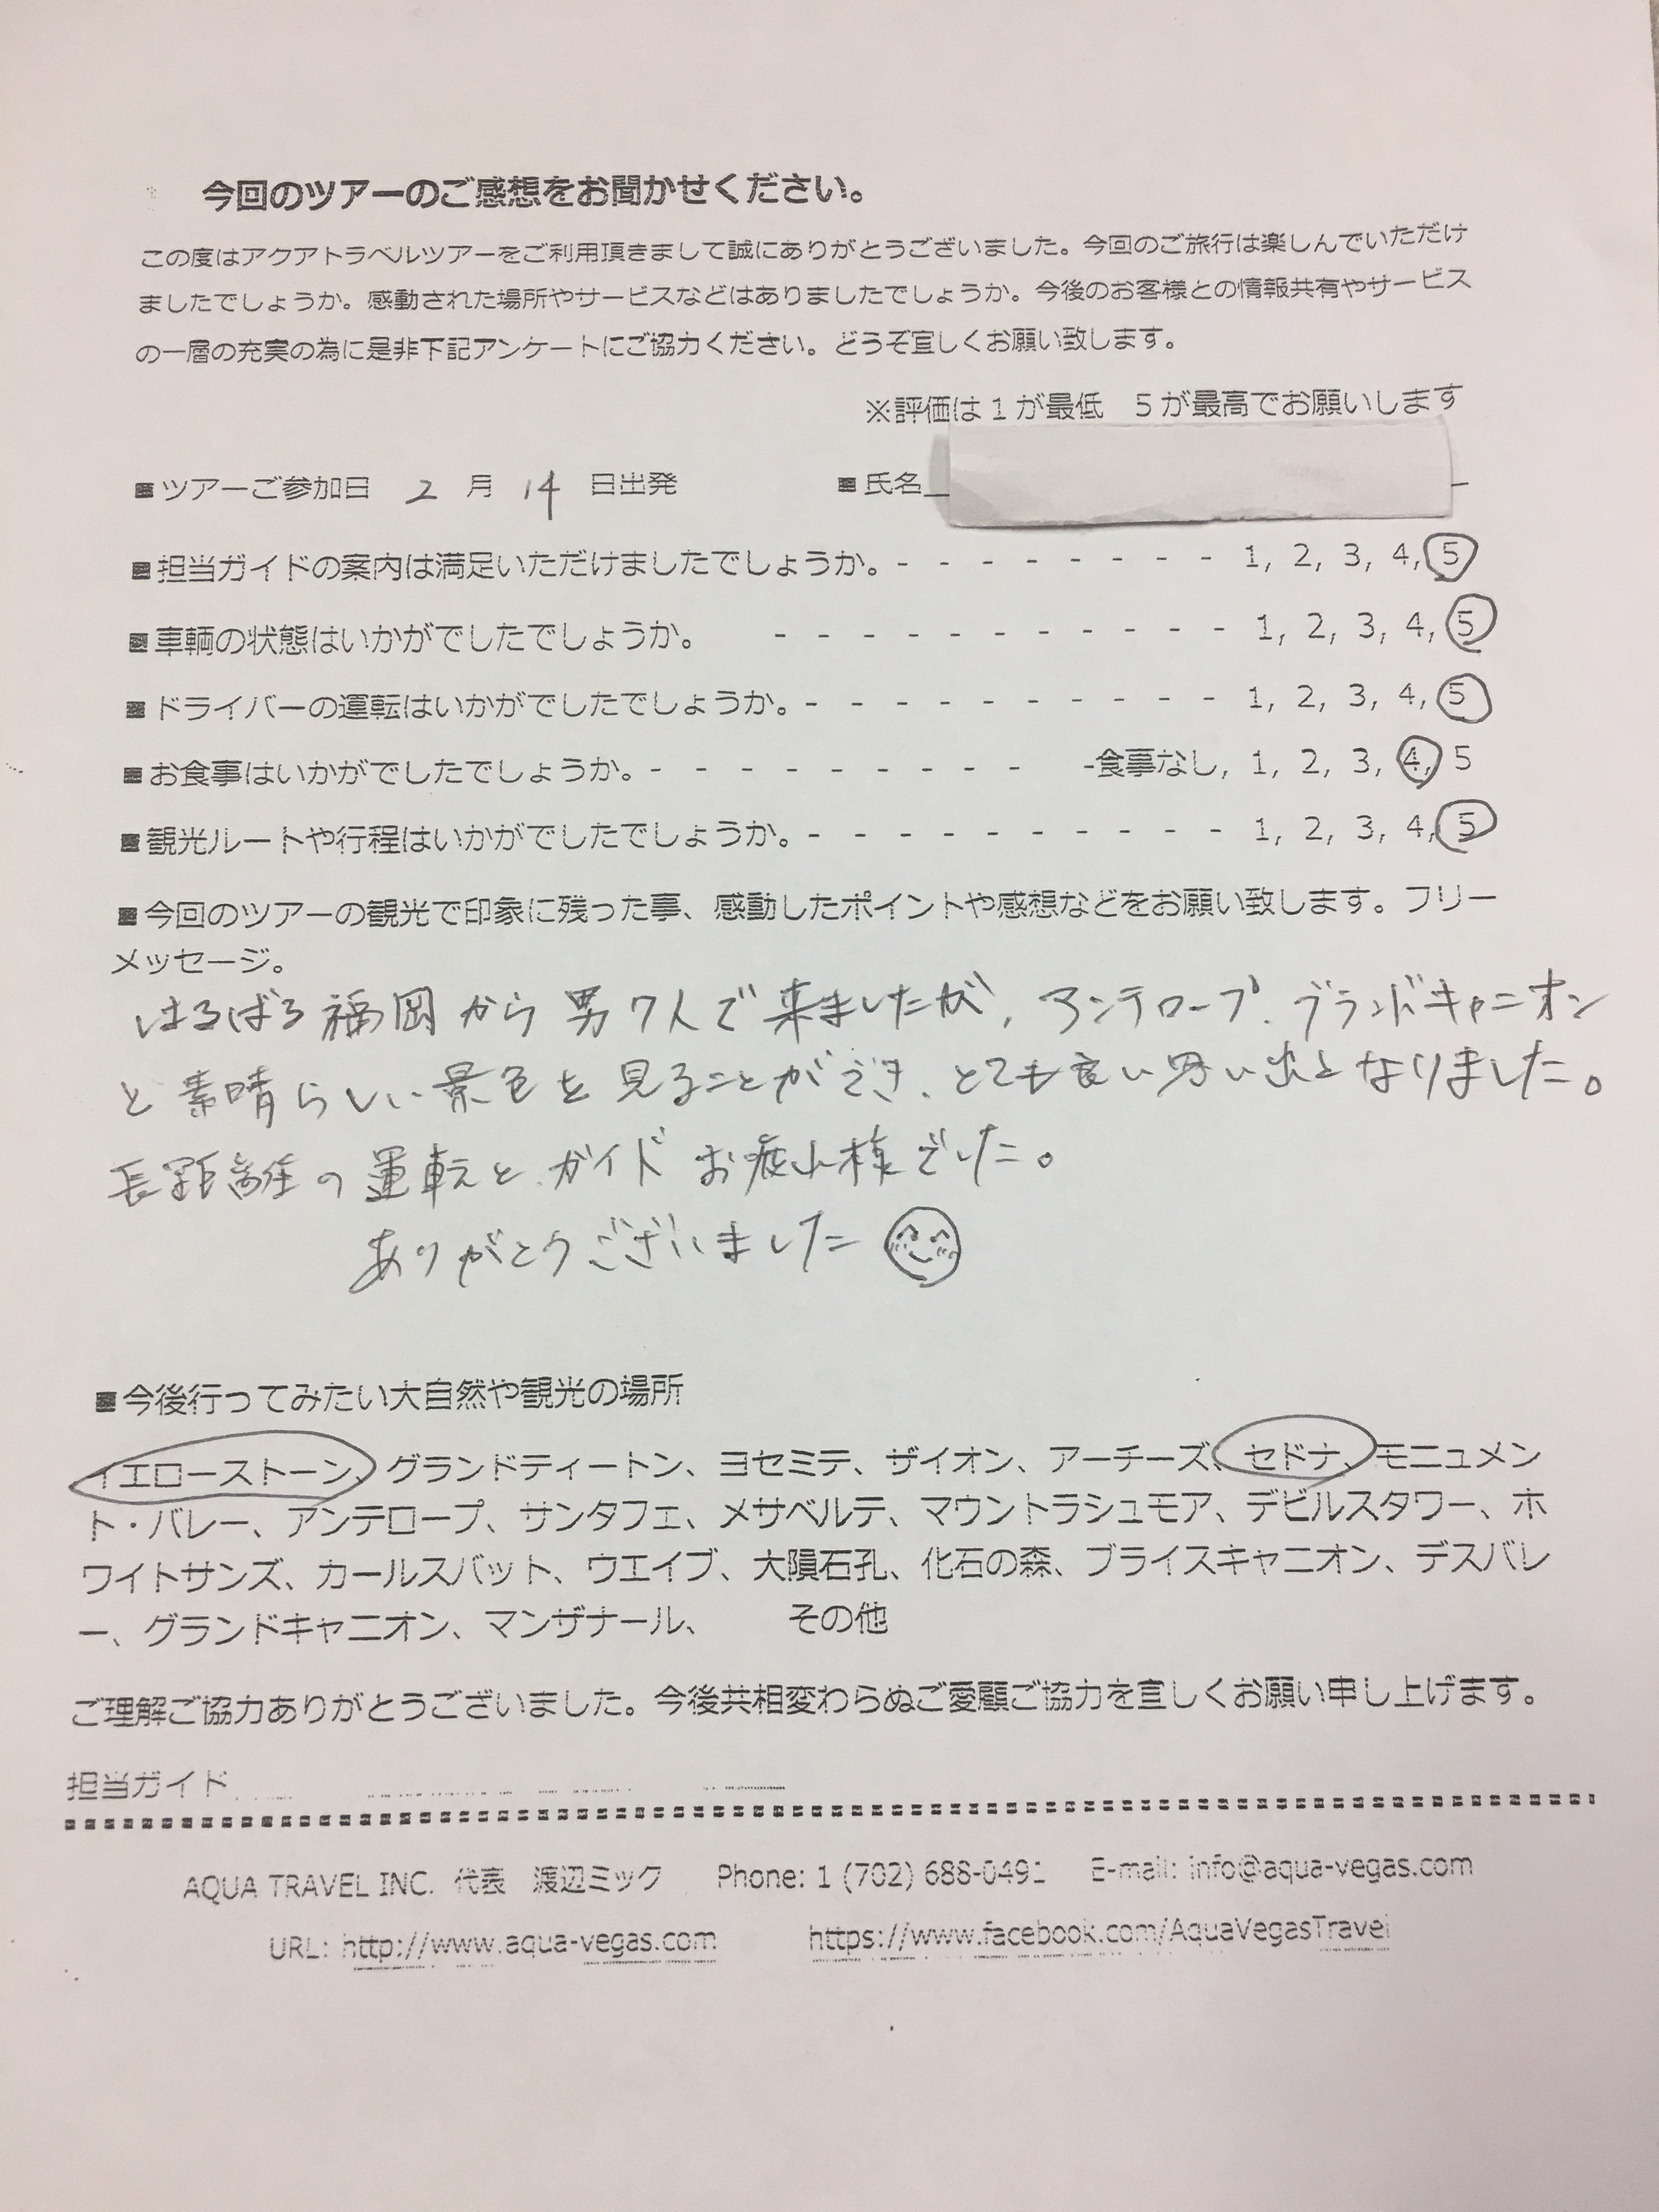 今回のツアーのご感想をお聞かせください。
この度はアクアトラベルツアーをご利用頂きまして誠にありがとうございました。今回のご旅行は楽しんでいただけ
ましたでしょうか。感動された場所やサービスなどはありましたでしょうか。今後のお客様との情報共有やサービス
の一層の充実の為に是非下記アンケートにご協力ください。どうぞ宜しくお願い致します。
※評価は1が最低 5が最高でお願いします
■ツアーご参加日 2 月 14 日出発 ■氏名
■担当ガイドの案内は満足いただけましたでしょうか。- - - - - - - - 1, 2, 3, 4, 5
■車輌の状態はいかがでしたでしょうか。 - - - - - - - - - - - - 1, 2, 3, 4, 5
■ドライバーの運転はいかがでしたでしょうか。- - - - - - - - - - 1, 2, 3, 4, 5
■お食事はいかがでしたでしょうか。- - - - - - - - - -食事なし, 1, 2, 3, 4, 5
■観光ルートや行程はいかがでしたでしょうか。- - - - - - - - - - 1, 2, 3, 4, 5
■今回のツアーの観光で印象に残った事、感動したポイントや感想などをお願い致します。フリー
メッセージ。
はるばる福岡から男7人で来ましたが、アンテロープ、グランドキャニオン
と素晴らしい景色を見ることができ、とても良い思い出となりました。
長距離の運転とガイドお疲れ様でした。
ありがとうございました
■今後行ってみたい大自然や観光の場所
イエローストーン、グランドティートン、ヨセミテ、ザイオン、アーチーズ、セドナ、モニュメン
ト・バレー、アンテロープ、サンタフェ、メサベルテ、マウントラシュモア、デビルスタワー、ホ
ワイトサンズ、カールスバット、ウエイブ、大隕石孔、化石の森、ブライスキャニオン、デスバレ
ー、グランドキャニオン、マンザナール、 その他
ご理解ご協力ありがとうございました。今後共相変わらぬご愛顧ご協力を宜しくお願い申し上げます。
担当ガイド
AQUA TRAVEL INC. 代表 渡辺ミック Phone: 1 (702) 688-0491 E-mail: info@aqua-vegas.com
URL: http://www.aqua-vegas.com https://www.facebook.com/AquaVegasTravel